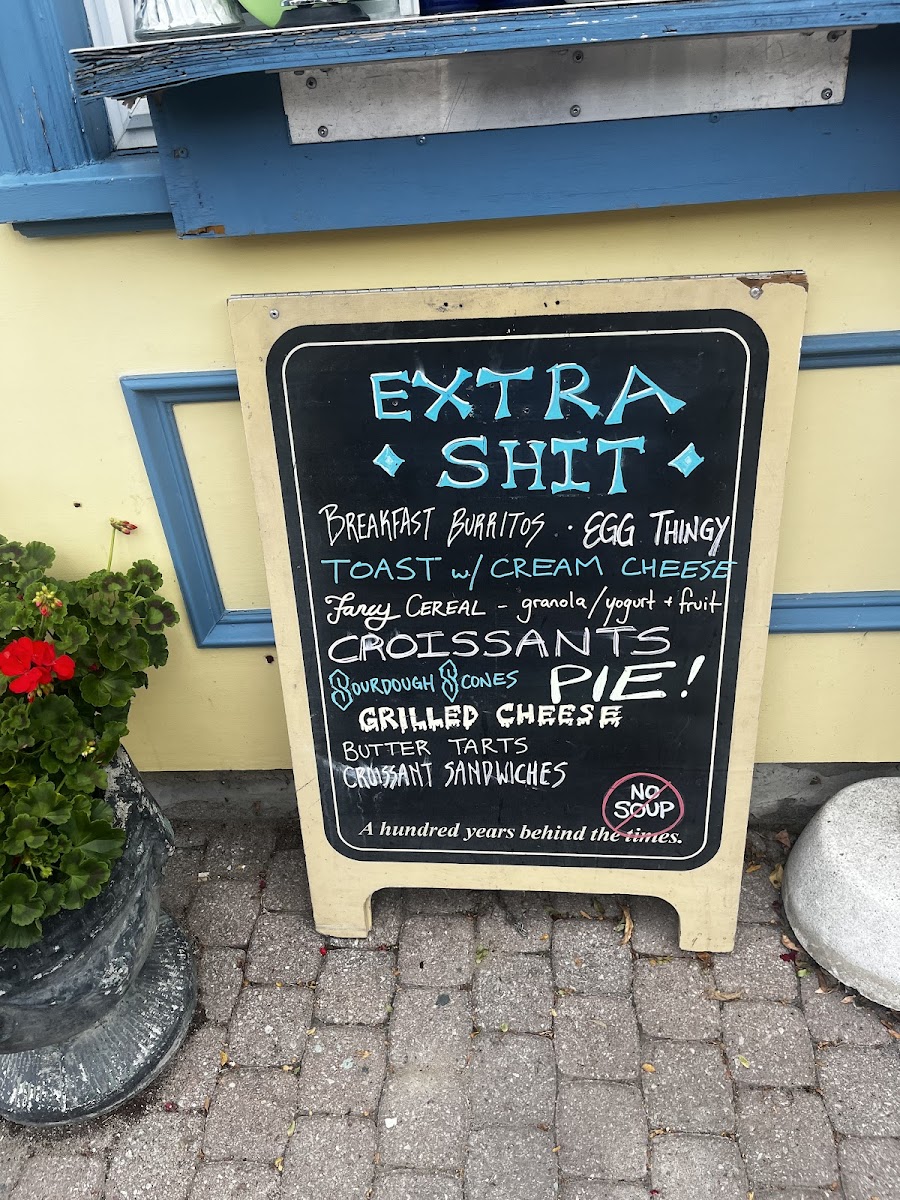 EXTRA
SHIT
BREAKFAST BURRITOS · EGG THINGY
TOAST w/ CREAM CHEESE
Fancy CEREAL - granola/yogurt + fruit
CROISSANTS
SOURDOUGH SCONES PIE!
GRILLED CHEESE
BUTTER TARTS
CROISSANT SANDWICHES
NO
SOUP
A hundred years behind the times.